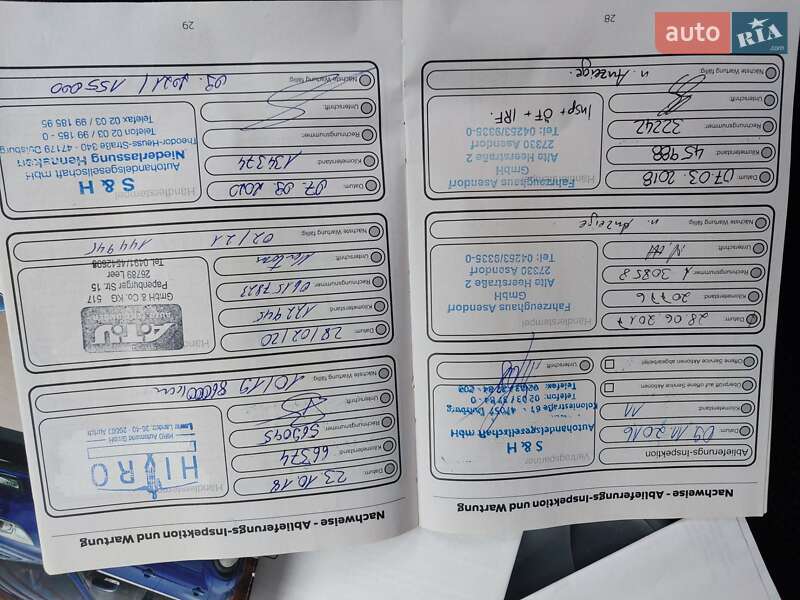 auto RIA.com
28
Nachweise - Ablieferungs-Inspektion und Wartung
Ablieferungs-Inspektion
Datum: 09.11.2016
Kilometerstand: 11
Überprüft auf offene Service Aktionen
Offene Service Aktionen abgearbeitet
Unterschrift:
Vertragspartner
S & H
Autohandelsgesellschaft mbH
Datum: 28.06.2017
Kilometerstand: 20776
Rechnungsnummer: 130858
Unterschrift:
Nächste Wartung fällig: n. Anzeige
Händlerstempel
Fahrzeughaus Asendorf
GmbH
Alte Heerstraße 2
27330 Asendorf
Tel: 04253/9335-0
Datum: 07.03.2018
Kilometerstand: 45988
Rechnungsnummer: 32242
Unterschrift:
Nächste Wartung fällig: n. Anzeige.
Händlerstempel
Fahrzeughaus Asendorf
GmbH
Alte Heerstraße 2
27330 Asendorf
Tel: 04253/9335-0
Insp + ÖF + IRF.
29
Nachweise - Ablieferungs-Inspektion und Wartung
Datum: 23.10.18
Kilometerstand: 66374
Rechnungsnummer: 565045
Unterschrift:
Nächste Wartung fällig: 10/19
Händlerstempel
HIRO
HIRO Automarkt GmbH
26607 Aurich
Datum: 28/02/20
Kilometerstand: 122945
Rechnungsnummer: 06157823
Unterschrift:
Nächste Wartung fällig: 02/21 144945
A.T.U
GmbH & Co. KG 517
Papenburger Str. 15
26789 Leer
Tel. 0491/4542808
Datum: 07.09.2020
Kilometerstand: 134374
Rechnungsnummer:
Unterschrift:
Nächste Wartung fällig: 09.2021 / 155000
Händlerstempel
S & H
Autohandelsgesellschaft mbH
Niederlassung Hamborn
Theodor-Heuss-Straße 340 - 47179 Duisburg
Telefon 02 03 / 99 185 - 0
Telefax 02 03 / 99 185 95